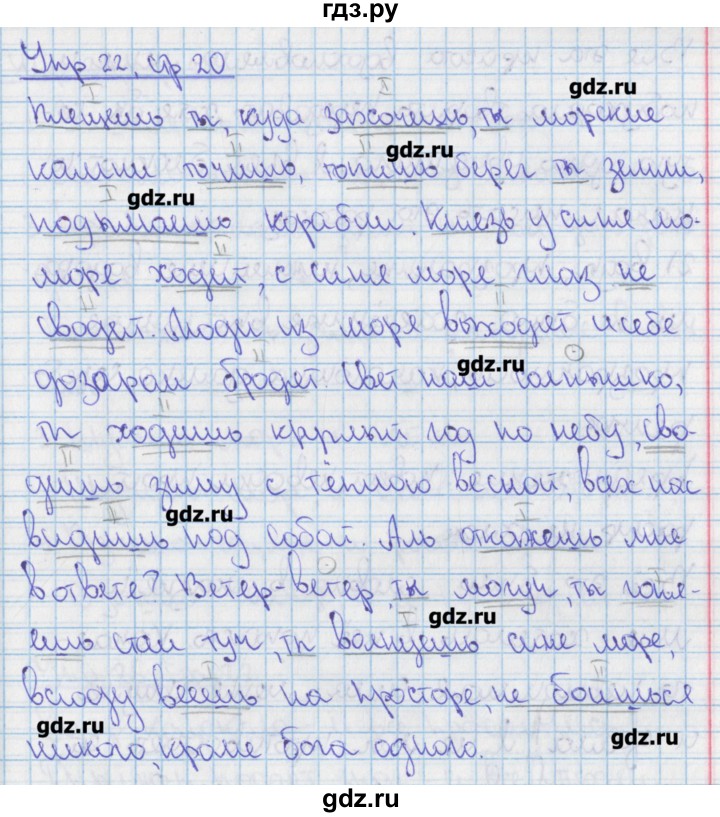 гдз.ру
Упр 22, стр 20
gdz.ru
I
II
Плещешь ты, куда захочешь, ты морские
II
II
gdz.ru
камни точишь, топишь берег ты земли,
I
gdz.ru
подымаешь корабли. Князь у синя мо-
II
море ходит, с синя море глаз не
II
II
сводит. Люди из моря выходят и себе
II
gdz.ru
дозором бродят. Свет наш солнышко,
II
ты ходишь круглый год по небу, сво-
II
дишь зиму с тёплою весной, всех нас
II
gdz.ru
I
видишь под собой. Аль откажешь мне
II
в ответе? Ветер-ветер, ты могуч, ты гоня-
I
gdz.ru
ешь стаи туч, ты волнуешь сине море,
I
II
всюду веешь на просторе, не боишься
gdz.ru
gdz.ru
никого, кроме бога одного.
gdz.ru